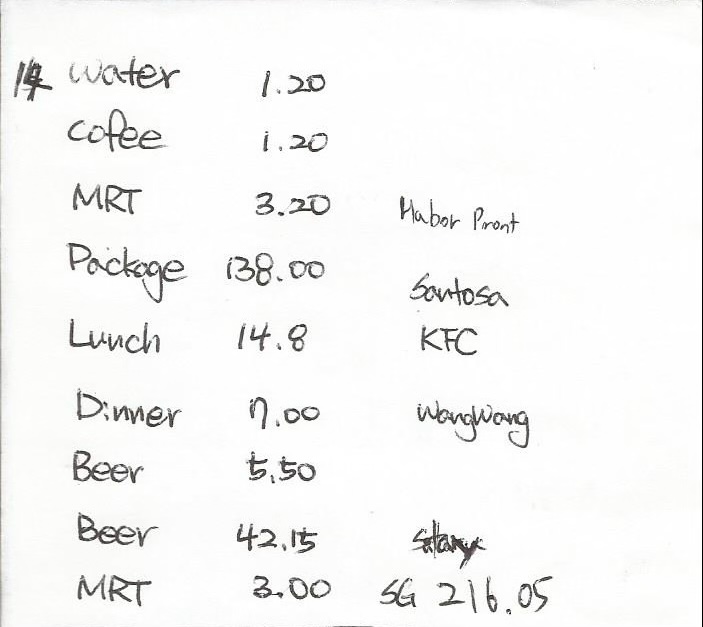 14 water 1.20
cofee 1.20
MRT 3.20 Habor Pront
Package 138.00 Santosa
Lunch 14.8 KFC
Dinner 7.00 WangWang
Beer 5.50
Beer 42.15
MRT 3.00 SG 216.05